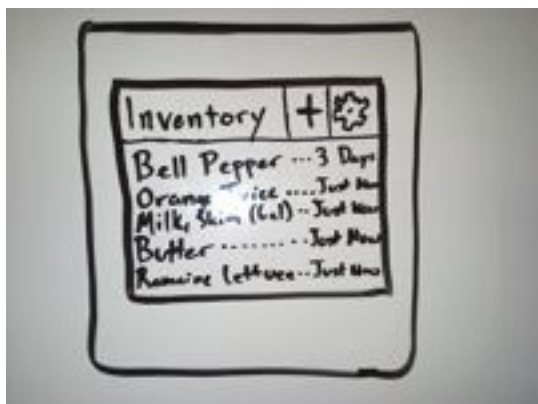 Inventory +
Bell Pepper ... 3 Days
Orange Juice .... Just Now
Milk, Skim (Gal) .. Just Now
Butter ........ Just Now
Romaine Lettuce .. Just Now